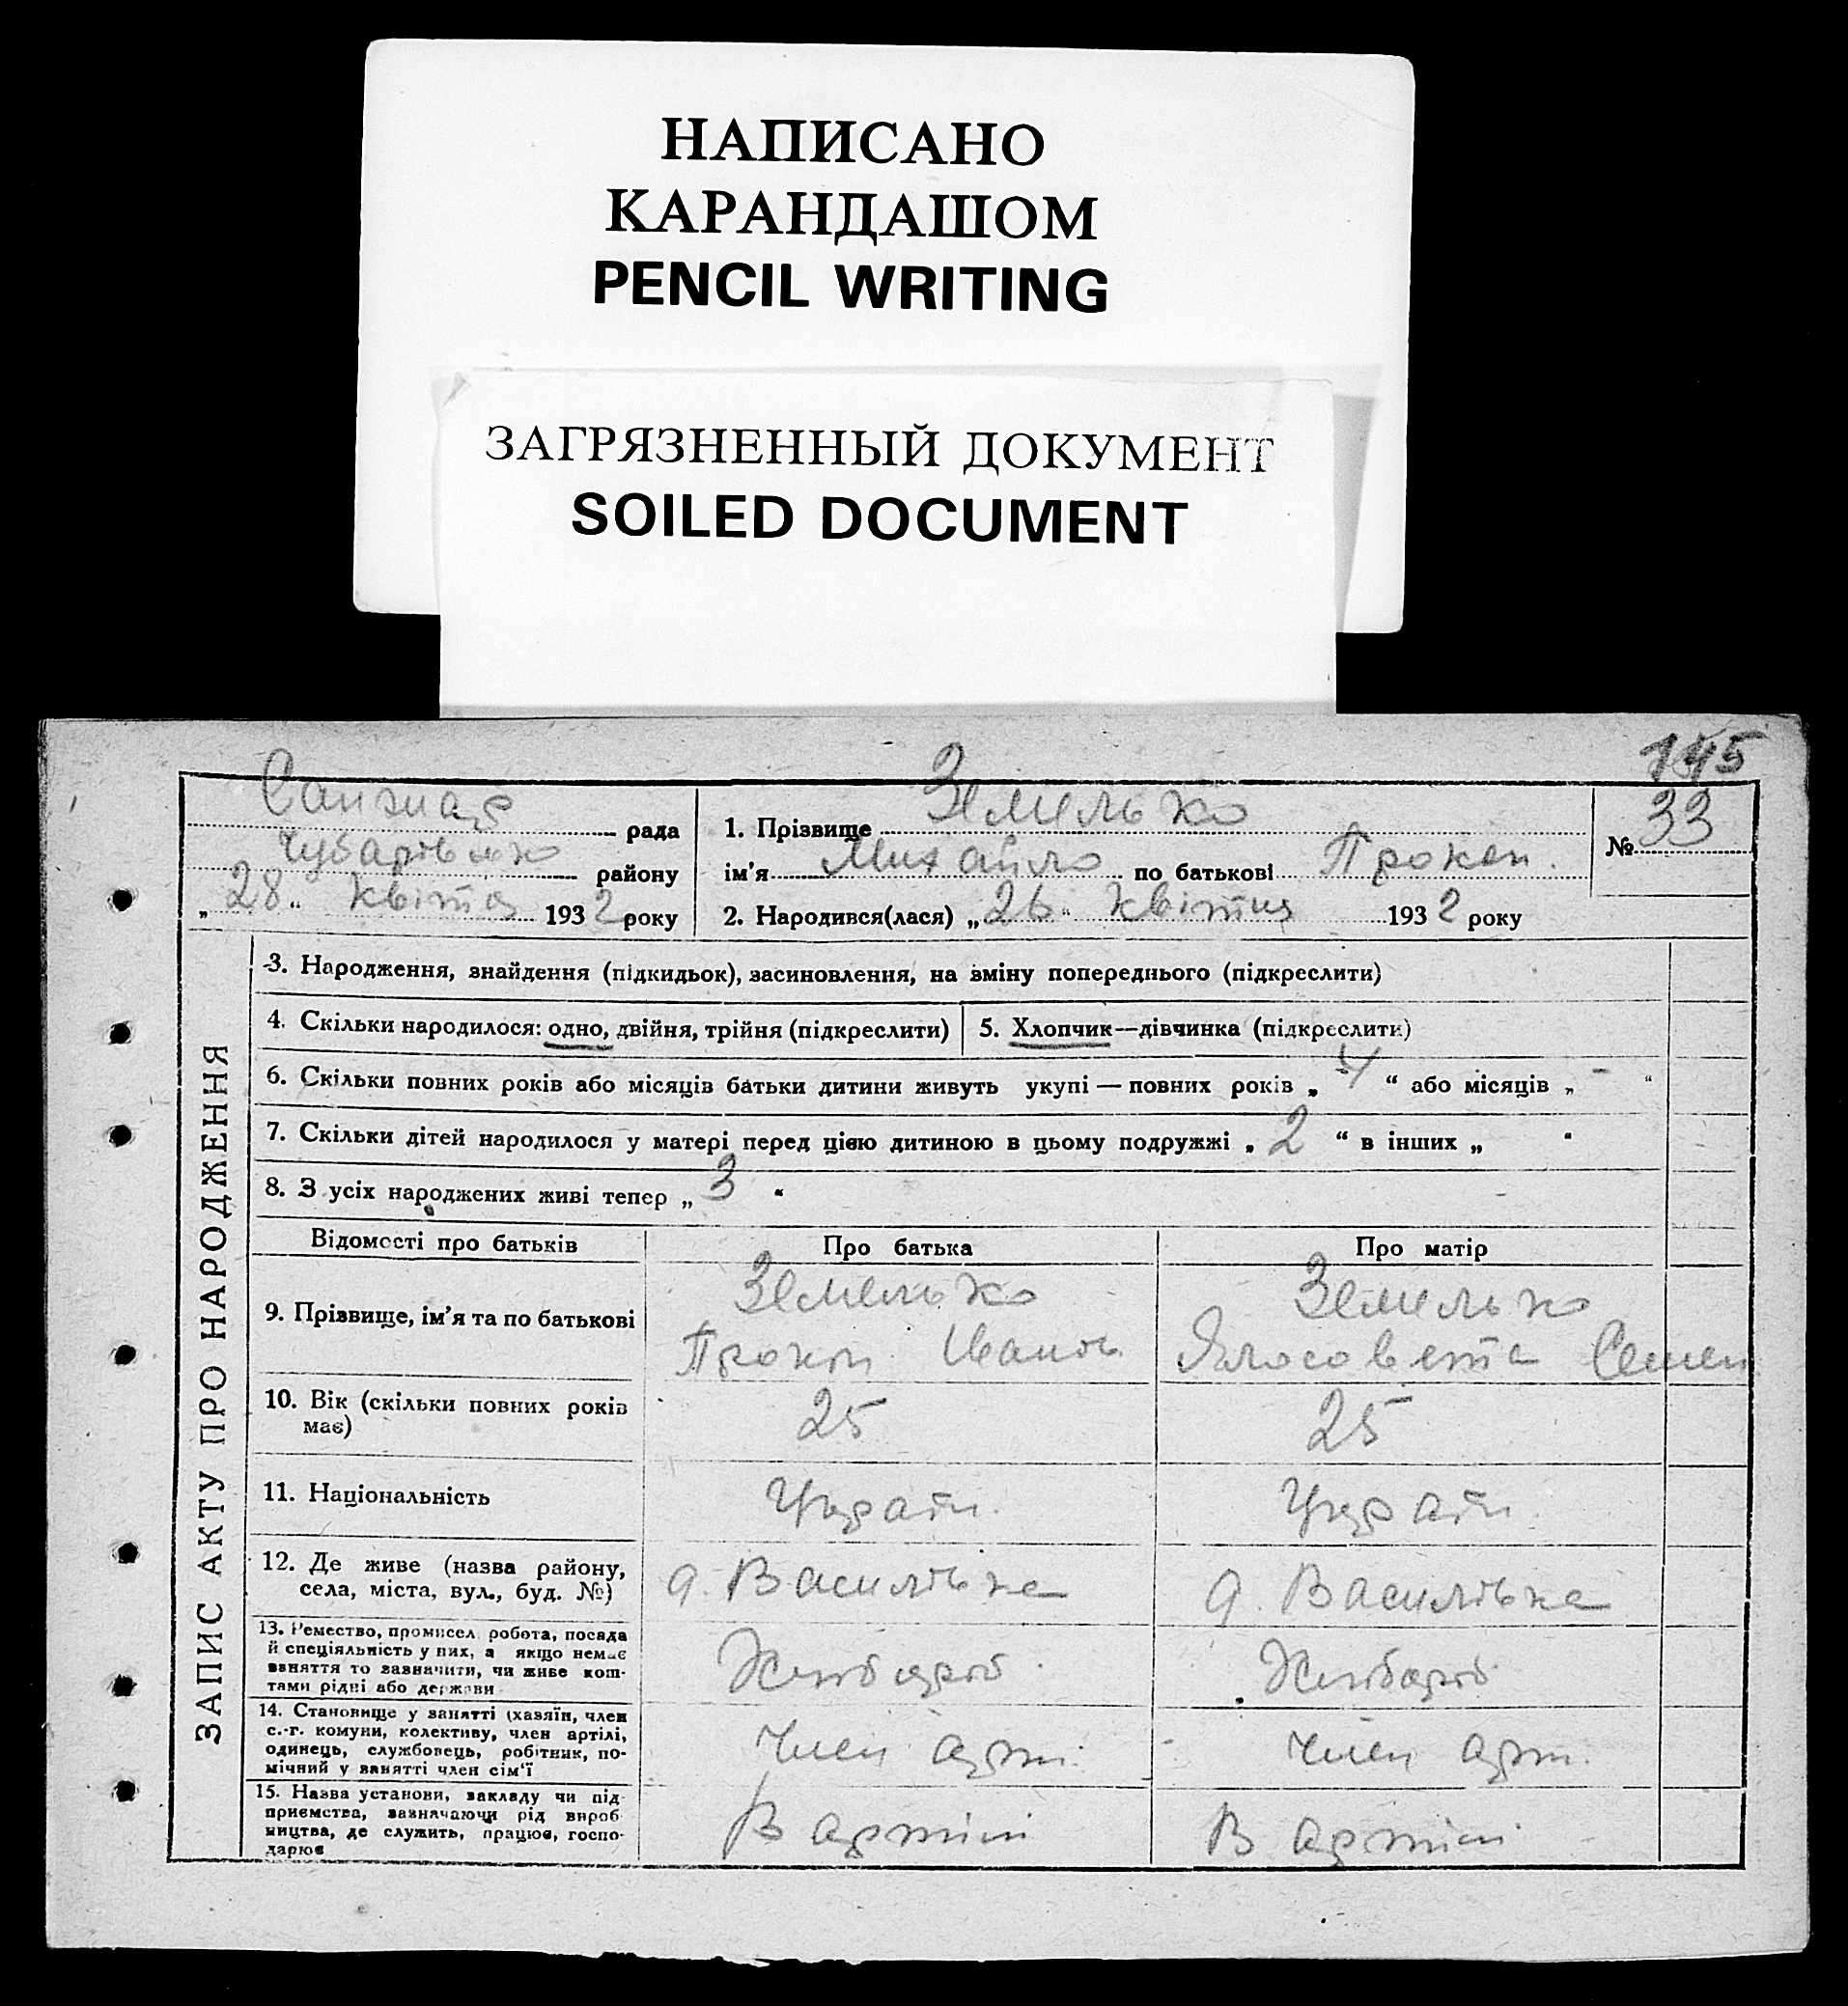 НАПИСАНО
КАРАНДАШОМ
PENCIL WRITING
ЗАГРЯЗНЕННЫЙ ДОКУМЕНТ
SOILED DOCUMENT
145
рада
району
„ 28 “ квітня 1932 року
1. Прізвище Земелько
ім'я Михайло по батькові Прокоп.
2. Народився(лася) „ 26 “ Квітня 1932 року
№ 33
ЗАПИС АКТУ ПРО НАРОДЖЕННЯ
3. Народження, знайдення (підкидьок), засиновлення, на зміну попереднього (підкреслити)
4. Скільки народилося: одно, двійня, трійня (підкреслити)
5. Хлопчик—дівчинка (підкреслити)
6. Скільки повних років або місяців батьки дитини живуть укупі — повних років „ 4 “ або місяців „ - “
7. Скільки дітей народилося у матері перед цією дитиною в цьому подружжі „ 2 “ в інших „ “
8. З усіх народжених живі тепер „ 3 “
Відомості про батьків Про батька Про матір
9. Прізвище, ім'я та по батькові
Земелько
Прокоп Іванов.
Земелько
Семен
10. Вік (скільки повних років
має)
25
25
11. Національність
Україн.
Україн.
12. Де живе (назва району,
села, міста, вул., буд. №)
Василівка
Василівка
13. Ремество, промисел, робота, посада
й спеціяльність у них, а якщо немає
заняття то зазначити, чи живе кош-
тами рідні або держави
Хлібороб.
Хлібороб.
14. Становище у занятті (хазяїн, член
с.-г. комуни, колективу, член артілі,
одинець, службовець, робітник, по-
мічний у занятті член сім'ї
Член арт.
Член арт.
15. Назва установи, закладу чи під-
приємства, зазначаючи рід вироб-
ництва, де служить, працює, госпо-
дарює
В артілі
В артілі